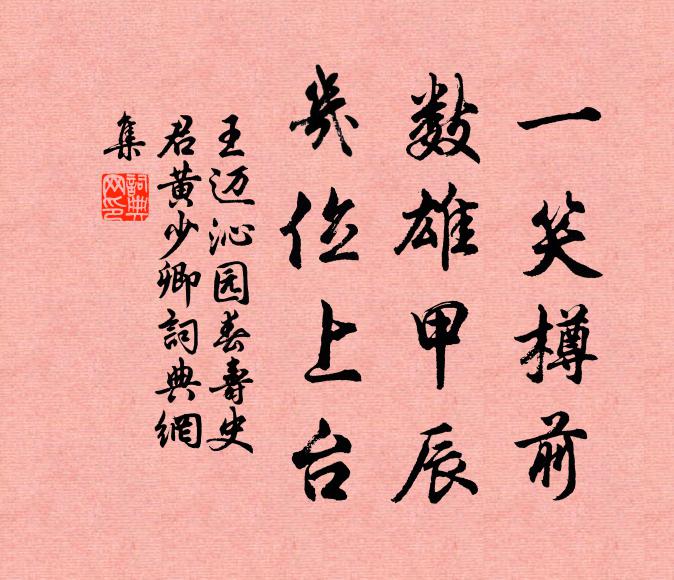 一笑樽前
数雄甲辰
几位上台
王迈沁园春壽史
君黄少卿詞典網
集
詞典網印